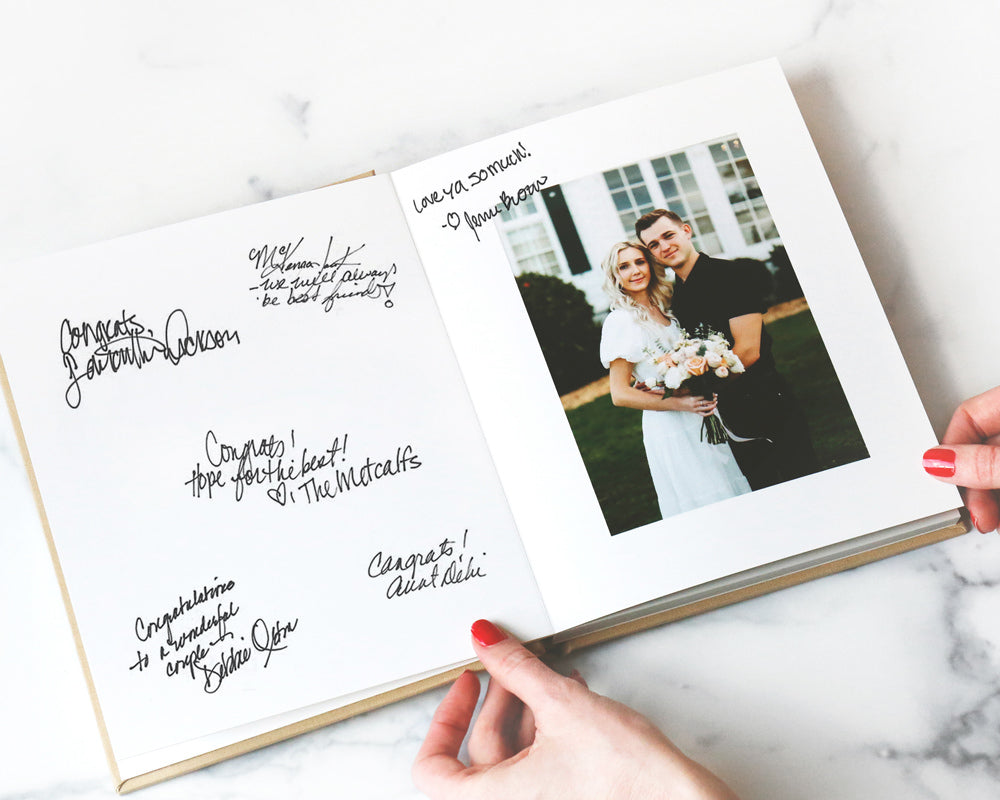 McKenna
-we will always
be best friends!
Congrats,
Jackson
Congrats!
Hope for the best!
♡, The Metcalfs
Congrats!
Aunt Debi
Congratulations
to a wonderful
couple
Debbie
Love ya so much!
-♡ Jenni Brown